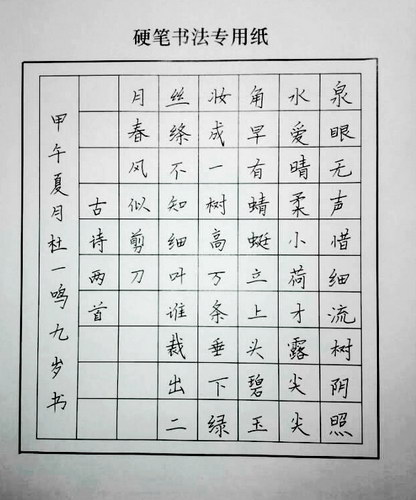 硬笔书法专用纸
泉眼无声惜细流树阴照
水爱晴柔小荷才露尖尖
角早有蜻蜓立上头碧玉
妆成一树高万条垂下绿
丝绦不知细叶谁裁出二
月春风似剪刀
古诗两首
甲午夏月杜一鸣九岁书